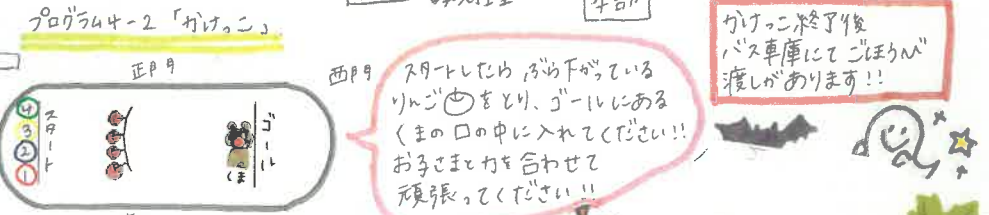 プログラム4-2「かけっこ」
正門
西門
④
③
②
①
スタート
くま
ゴール
スタートしたら、ぶら下がっている
りんごをとり、ゴールにある
くまの口の中に入れてください!!
お子さまと力を合わせて
頑張ってください!!
かけっこ終了後
バス車庫にてごほうび
渡しがあります!!